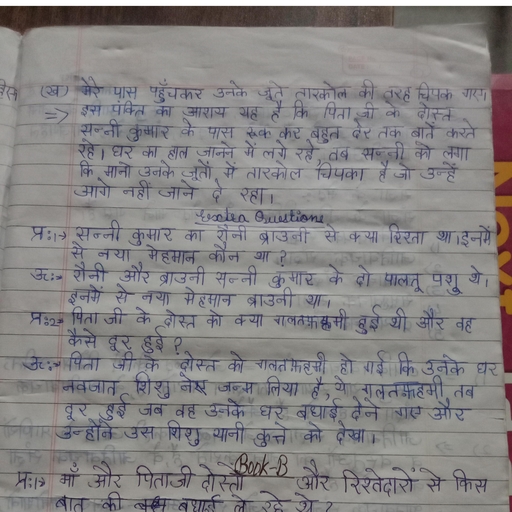 (ख) मेरे पास पहुँचकर उनके जूते तारकोल की तरह चिपक गए।
=> इस पंक्ति का आशय यह है कि पिता जी के दोस्त
सन्नी कुमार के पास रूक कर बहुत देर तक बातें करते
रहे। घर का हाल जानने में लगे रहे, तब सन्नी को लगा
कि मानो उनके जूतों में तारकोल चिपका है जो उन्हें
आगे नहीं जाने दे रहा।
Extra Questions
प्र:1→ सन्नी कुमार का शैनी ब्राउनी से क्या रिश्ता था। इनमें
से नया मेहमान कौन था?
उ:→ शैनी और ब्राउनी सन्नी कुमार के दो पालतू पशु थे।
इनमें से नया मेहमान ब्राउनी था।
प्र:2→ पिता जी के दोस्त को क्या गलतफ़हमी हुई थी और वह
कैसे दूर हुई?
उ:→ पिता जी के दोस्त को गलतफ़हमी हो गई कि उनके घर
नवजात शिशु ने जन्म लिया है, ये गलतफ़हमी तब
दूर हुई जब वह उनके घर बधाई देने गए और
उन्होंने उस शिशु यानी कुत्ते को देखा।
Book-B
प्र:1→ माँ और पिताजी दोस्तों और रिश्तेदारों से किस
बात की बधाई ले रहे थे?